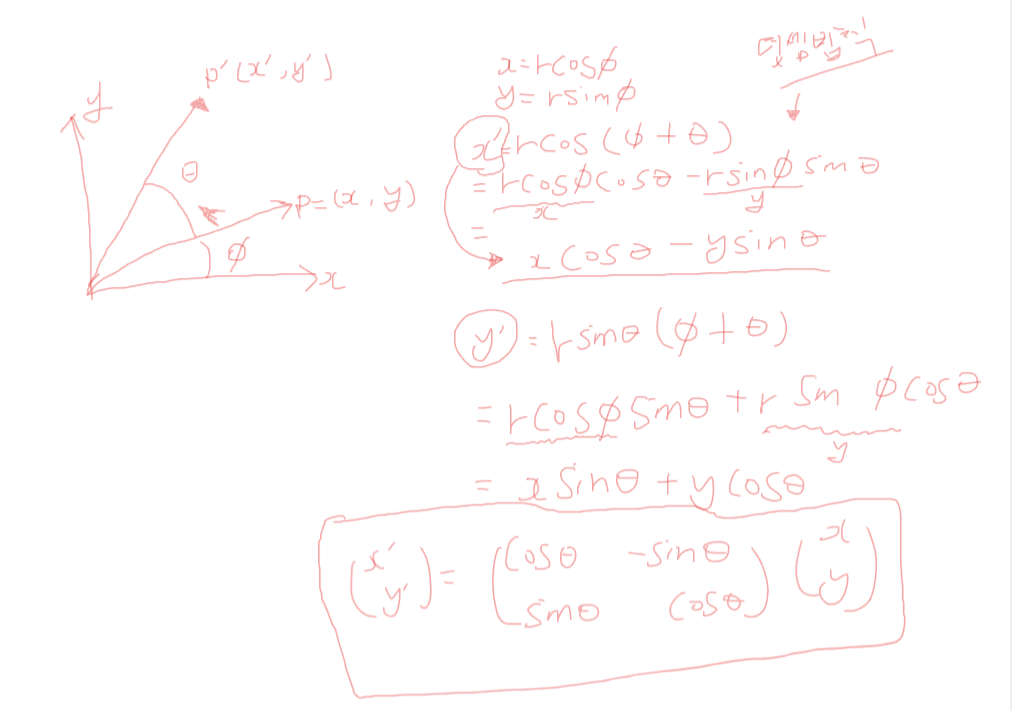 y
p'(x', y')
θ
p=(x, y)
ϕ
x
x=rcosϕ
y=rsinϕ
x'=rcos(ϕ+θ)
=rcosϕcosθ-rsinϕsinθ
x
y
=
xcosθ-ysinθ
y'=rsinθ(ϕ+θ)
=rcosϕsinθ+rsinϕcosθ
y
=xsinθ+ycosθ
(x' y')=(cosθ -sinθ sinθ cosθ)(x y)